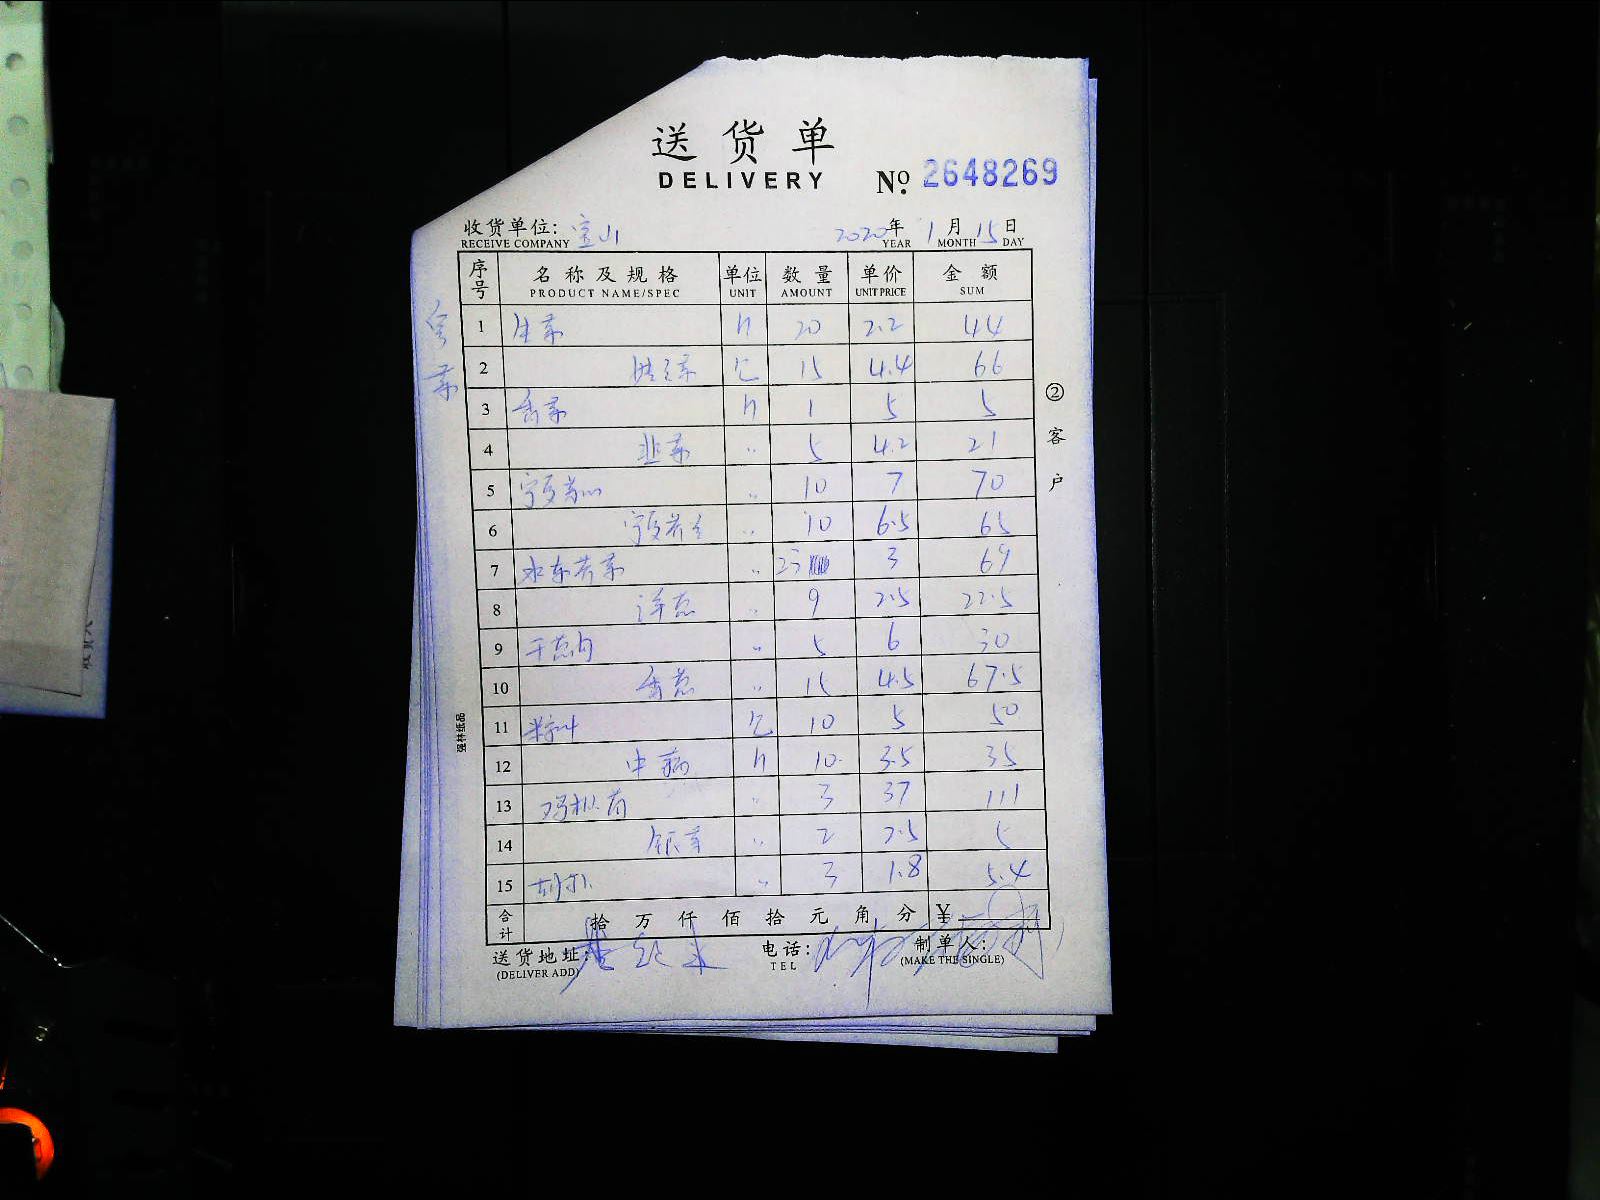 送货单
DELIVERY
№ 2648269
收货单位: 宝山 2020年 1月 15日
RECEIVE COMPANY YEAR MONTH DAY
序号 名称及规格 单位 数量 单价 金额
PRODUCT NAME/SPEC UNIT AMOUNT UNIT PRICE SUM
1 生菜 斤 20 2.2 44
2 15 4.4 66
3 香菜 斤 1 5 5
4 韭菜 〃 5 4.2 21
5 宁夏菜心 〃 10 7 70
6 宁夏芥兰 〃 10 6.5 65
7 水东芥菜 〃 23 3 69
8 洋葱 〃 9 2.5 22.5
9 干葱肉 〃 5 6 30
10 香葱 〃 15 4.5 67.5
11 粽叶 10 5 50
12 中 斤 10 3.5 35
13 鸡枞菌 〃 3 37 111
14 银芽 〃 2 2.5 5
15 胡卜 〃 3 1.8 5.4
合计 拾 万 仟 佰 拾 元 角 分 ¥
送货地址: 电话: 制单人:
(DELIVER ADD) TEL (MAKE THE SINGLE)
②客户
强林纸品